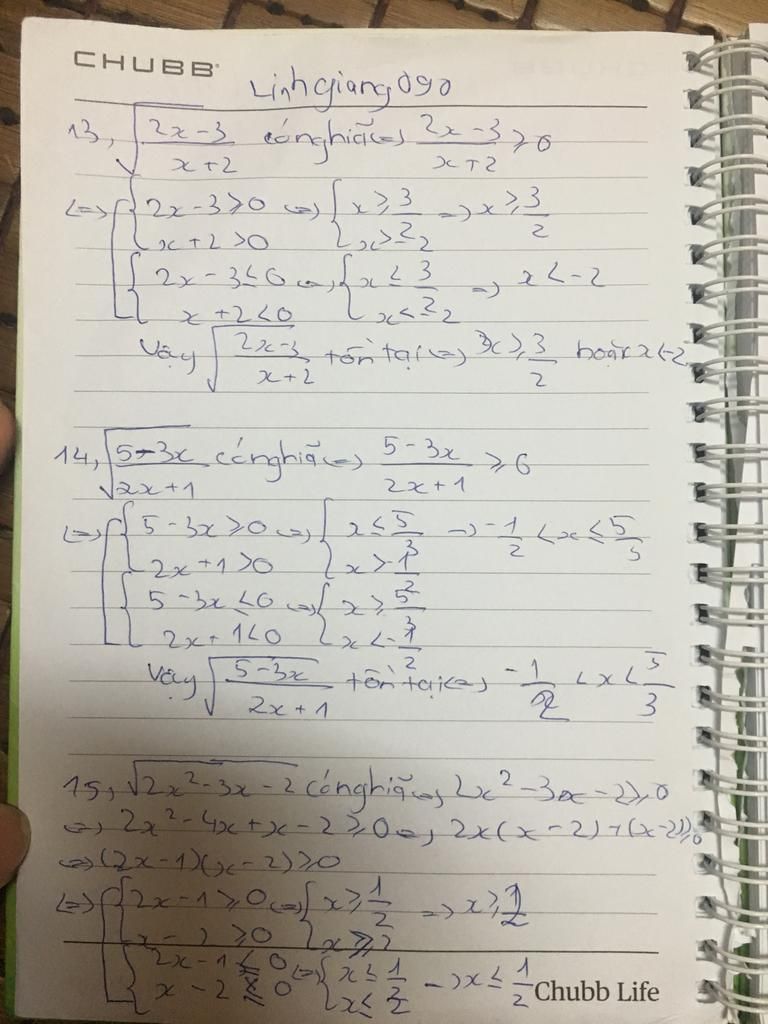 CHUBB
Linhgiang090
13, √((2x-3)/(x+2)) có nghĩa <=> (2x-3)/(x+2) ≥ 0
<=> [ { 2x-3 ≥ 0 <=> { x ≥ 3/2 => x ≥ 3/2
x+2 > 0 x > -2
{ 2x-3 ≤ 0 <=> { x ≤ 3/2 => x < -2
x+2 < 0 x < -2
Vậy √((2x-3)/(x+2)) tồn tại <=> x ≥ 3/2 hoặc x < -2
14, √((5-3x)/(2x+1)) có nghĩa <=> (5-3x)/(2x+1) ≥ 0
<=> [ { 5-3x ≥ 0 <=> { x ≤ 5/3 => -1/2 < x ≤ 5/3
2x+1 > 0 x > -1/2
{ 5-3x ≤ 0 <=> { x ≥ 5/3
2x+1 < 0 x < -1/2
Vậy √((5-3x)/(2x+1)) tồn tại <=> -1/2 < x < 5/3
15, √(2x²-3x-2) có nghĩa <=> 2x²-3x-2 ≥ 0
<=> 2x²-4x+x-2 ≥ 0 <=> 2x(x-2)+(x-2) ≥ 0
<=> (2x-1)(x-2) ≥ 0
<=> [ { 2x-1 ≥ 0 <=> { x ≥ 1/2 => x ≥ 1/2
x-2 ≥ 0 x ≥ 2
{ 2x-1 ≤ 0 <=> { x ≤ 1/2 => x ≤ 1/2
x-2 ≤ 0 x ≤ 2
Chubb Life